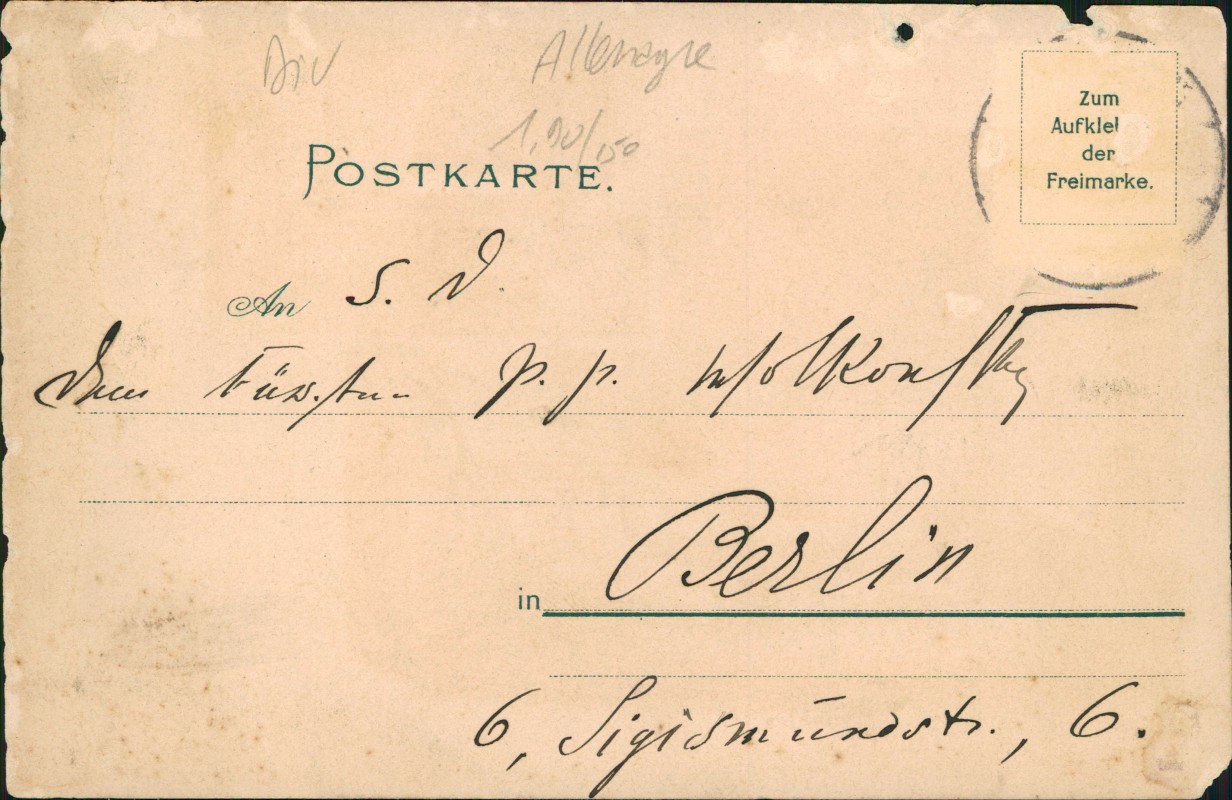 Div
Allemagne
1,90/150
POSTKARTE.
Zum
Aufkle
der
Freimarke.
An S. D.
Dem Fürsten P. P. Wolkonsky
in Berlin
6, Sigismundstr., 6.